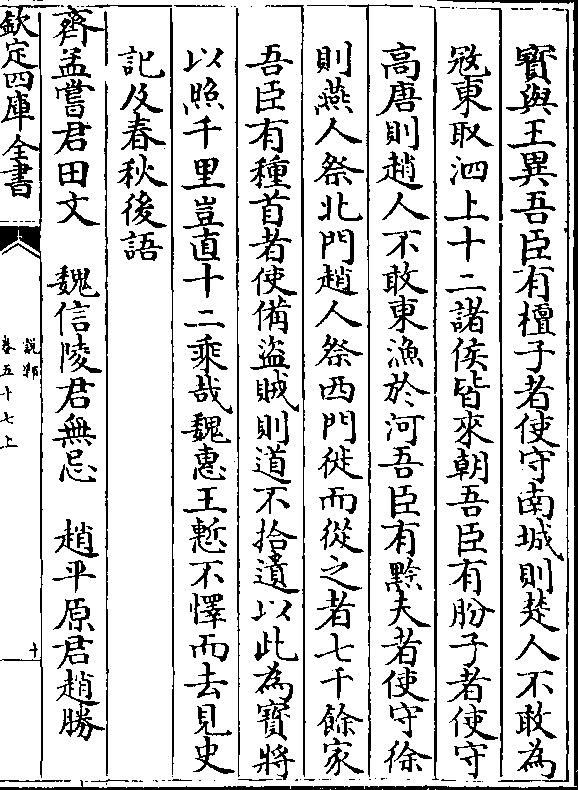 寶與王異吾臣有檀子者使守南城則楚人不敢為
宼東取泗上十二諸侯皆來朝吾臣有肦子者使守
高唐則趙人不敢東漁於河吾臣有黔夫者使守徐
則燕人祭北門趙人祭西門徙而從之者七千餘家
吾臣有種首者使備盜賊則道不拾遺以此為寶將
以照千里豈直十二乘哉魏惠王慙不懌而去見史
記及春秋後語
齊孟嘗君田文　魏信陵君無忌　趙平原君趙勝
欽定四庫全書
說郛
卷五十七上
十